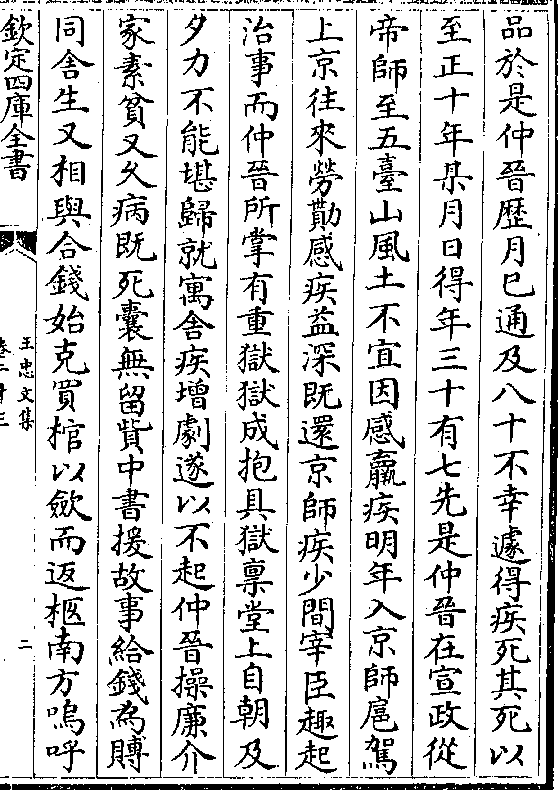 品於是仲晉歴月已通及八十不幸遽得疾死其死以
至正十年某月日得年三十有七先是仲晉在宣政從
帝師至五臺山風土不宜因感羸疾明年入京師扈駕
上京往來勞勩感疾益深既還京師疾少間宰臣趣起
治事而仲晉所掌有重獄獄成抱具獄禀堂上自朝及
夕力不能堪歸就寓舎疾增劇遂以不起仲晉操廉介
家素貧又久病既死囊無留貲中書援故事給錢為賻
同舎生又相與合錢始克買棺以斂而返柩南方嗚呼
欽定四庫全書
王忠文集
卷二十三
二